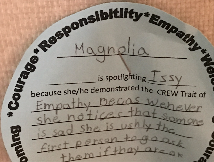 *Courage*Responsibility*Empathy*Wo
oning
Magnolia
is spotlighting Issy
because she/he demonstrated the CREW Trait of
Empathy becas wehever
she notices that somone
is sad she is
first person to go ask
them if they are